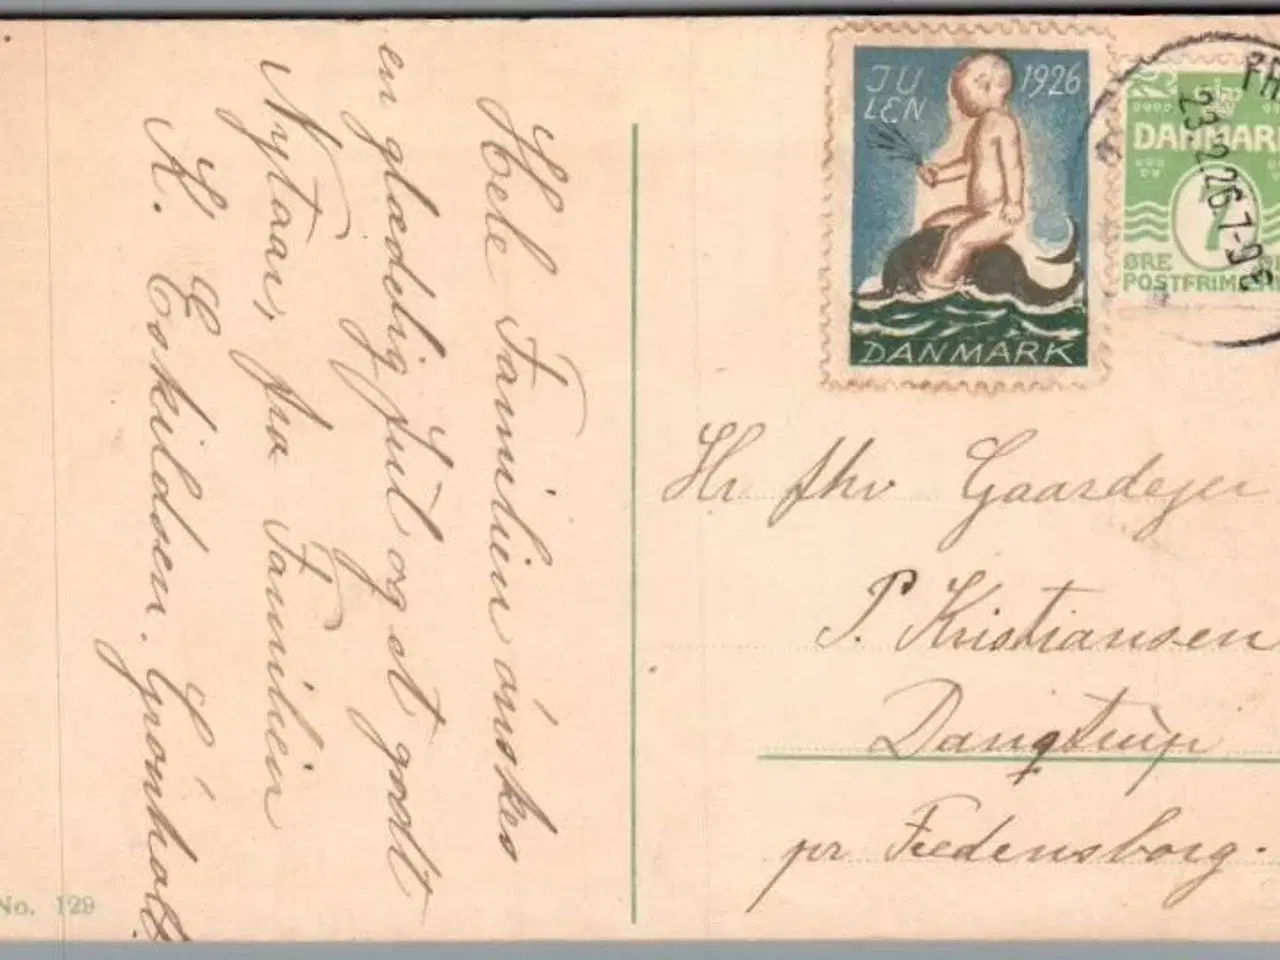 Hele Familien ønskes
en glædelig Jul og et godt
Nytaar, fra Familien
K. Eskildsen. Grønholt
JU
LEN
1926
DANMARK
DANMARK
7
ØRE
POSTFRIM
23.12.26.7-9
Hr fhv Gaardejer
P. Kristiansen
Dangstrup
pr Fredensborg.
No. 129